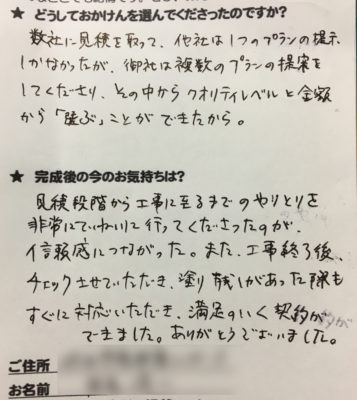 ★ どうしておかけんを選んでくださったのですか?
数社に見積を取って、他社は1つのプランの提示
しかなかったが、御社は複数のプランの提案を
してくださり、その中からクオリティレベルと金額
から「選ぶ」ことができたから。
★ 完成後の今のお気持ちは?
見積段階から工事に至るまでのやりとりを
非常にていねいに行ってくださったのが、
信頼感につながった。また、工事終了後、
チェックさせていただき、塗り残しがあった際も
すぐに対応いただき、満足のいく契約が
できました。ありがとうございました。
ご住所
お名前